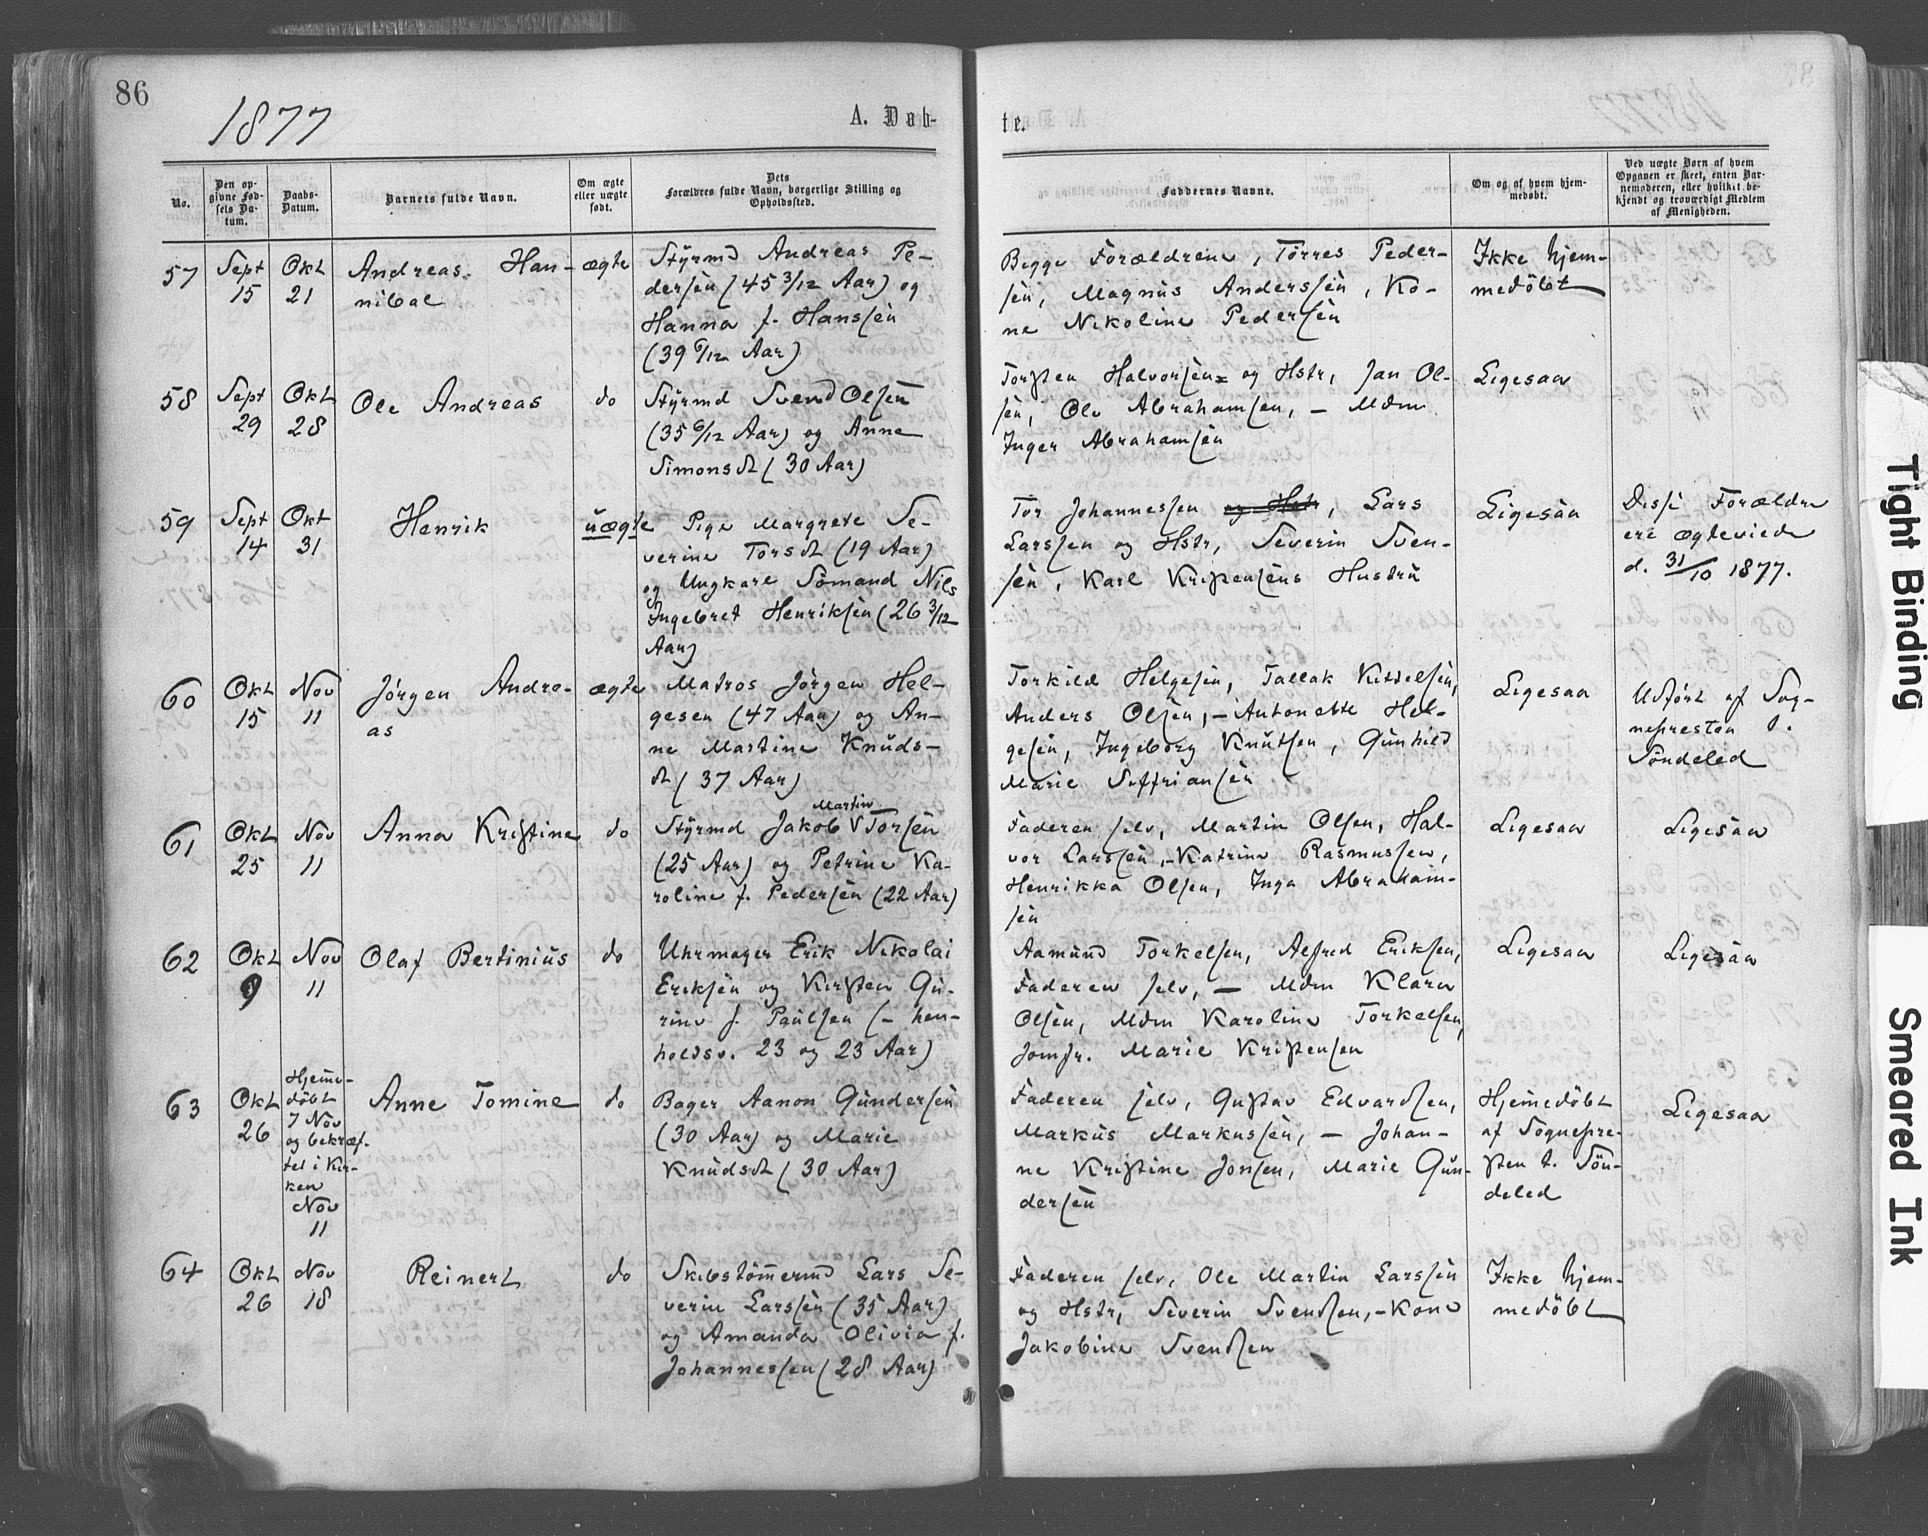 86
1877
A. Døb-
te.
No.
Den op-
givne Fød-
sels Da-
tum.
Daabs-
Datum.
Barnets fulde Navn.
Om ægte
eller uægte
født.
Dets
Forældres fulde Navn, borgerlige Stilling og
Opholdssted.
Faddernes Navne.
Om og af hvem hjem-
medøbt.
Ved uægte Børn af hvem
Opgaven er skeet, enten Bar-
nemoderen, eller hvilket be-
kjendt og troværdigt Medlem
af Menigheden.
57
Sept
15
Okt
21
Andreas Han-
nibal
ægte
Styrmd Andreas Pe-
dersen (45 3/12 Aar) og
Hanna f. Hanssen
(39 6/12 Aar)
Begge Forældrene, Tørres Peder-
sen, Magnus Anderssen, Ko-
ne Nikoline Pedersen
Ikke hjem-
medöbt
58
Sept
29
Okt
28
Ole Andreas
do
Styrmd Svend Olsen
(35 6/12 Aar) og Anne
Simonsdt (30 Aar)
Torsten Halvorsen og Hstr, Jan Ol-
sen, Ole Abrahamsen, – Mdm
Inger Abrahamsen
Ligesaa
59
Sept
14
Okt
31
Henrik
uægte
Pige Margrete Se-
verine Torsdt (19 Aar)
og Ungkarl Sömand Nils
Ingebret Henriksen (26 3/12
Aar)
Tor Johannessen og Hstr, Lars
Larssen og Hstr, Severin Sven-
sen, Karl Kristensens Hustru
Ligesaa
Disse Forældre
ere ægteviede
d. 31/10 1877.
60
Okt
15
Nov
11
Jørgen Andre-
as
ægte
Matros Jørgen Hel-
gesen (47 Aar) og An-
ne Martine Knuds-
dt (37 Aar)
Torkild Helgesen, Tallak Kittelsen,
Anders Olsen, – Antonette Hel-
gesen, Ingeborg Knutsen, Gunhild
Marie Seffriansen
Ligesaa
Udført af Sog-
nepresten t.
Söndeled
61
Okt
25
Nov
11
Anna Kristine
do
Martin
Styrmd Jakob V Torsen
(25 Aar) og Petrine Ka-
roline f. Pedersen (22 Aar)
Faderen selv, Martin Olsen, Hal-
vor Larssen, – Katrine Rasmussen,
Henrikka Olsen, Inga Abraham-
sen
Ligesaa
Ligesaa
62
Okt
9
Nov
11
Olaf Bertinius
do
Uhrmager Erik Nikolai
Eriksen og Kirsten Gu-
rine f. Paulsen (– hen-
holdsv. 23 og 23 Aar)
Aamund Torkelsen, Alfred Eriksen,
Faderen selv, – Mdm Klara
Olsen, Mdm Karoline Torkelsen,
Jomfr. Marie Kristensen
Ligesaa
Ligesaa
63
Okt
26
Hjeme-
döbt
7 Nov
og bekræf-
tet i Kir-
ken
Nov
11
Anne Tomine
do
Bager Aanon Gundersen
(30 Aar) og Marie
Knudsdt (30 Aar)
Faderen selv, Gustav Edvardsen,
Markus Markussen, – Johan-
ne Kristine Jonsen, Marie Gun-
dersen
Hjemedöbt
af Sognepre-
sten t. Sön-
deled
Ligesaa
64
Okt
26
Nov
18
Reinert
do
Skibstömermd Lars Se-
verin Larssen (35 Aar)
og Amanda Olivia f.
Johannessen (28 Aar)
Faderen selv, Ole Martin Larssen
og Hstr, Severin Svendsen, – Kone
Jakobine Svendsen
Ikke hjem-
medöbt
Tight Binding
Smeared Ink